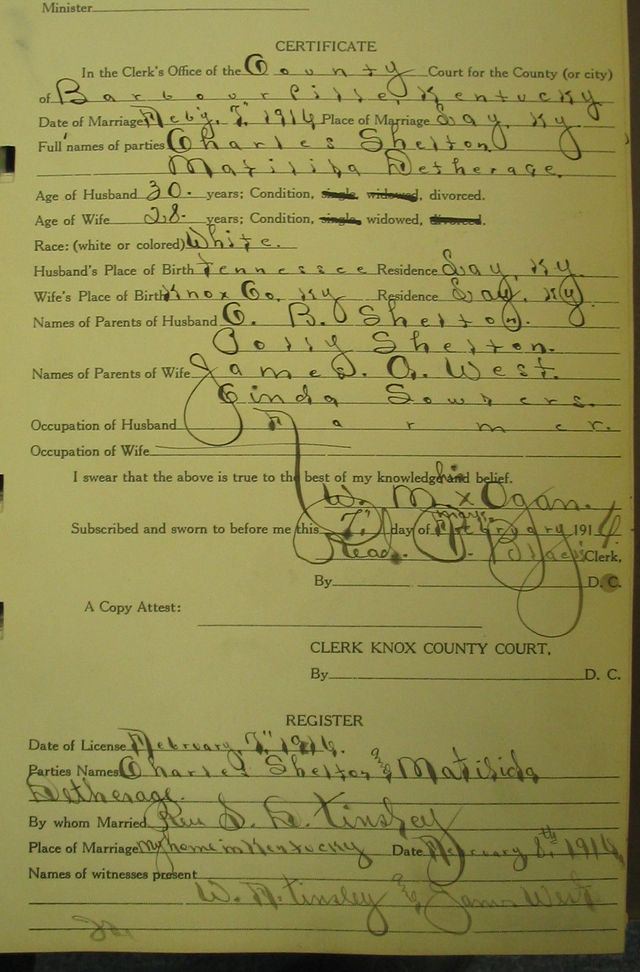 Minister
CERTIFICATE
In the Clerk's Office of the County Court for the County (or city)
of Barbourville, Kentucky
Date of Marriage Feb'y, 7, 1916 Place of Marriage Lay, Ky
Full names of parties Charles Shelton
Matilda Detherage.
Age of Husband 30. years; Condition, single, widowed, divorced.
Age of Wife 28. years; Condition, single, widowed, divorced.
Race: (white or colored) White.
Husband's Place of Birth Tennessee Residence Lay, Ky
Wife's Place of Birth Knox Co, Ky Residence Lay, Ky
Names of Parents of Husband C. B. Shelton.
Polly Shelton.
Names of Parents of Wife James. A. West.
Cinda Sowders.
Occupation of Husband Farmer.
Occupation of Wife
I swear that the above is true to the best of my knowledge and belief.
his
W. M. x Ogan.
mark.
Subscribed and sworn to before me this 7" day of February 1916
Read. P. Black Clerk,
By D. C.
A Copy Attest:
CLERK KNOX COUNTY COURT,
By D. C.
REGISTER
Date of License February, 7" 1916.
Parties Names Charles Shelton & Matilida
Detherage.
By whom Married Rev S. D. Tinsley
Place of Marriage My home in Kentucky Date February 8th, 1916
Names of witnesses present
W. H. Tinsley & James West